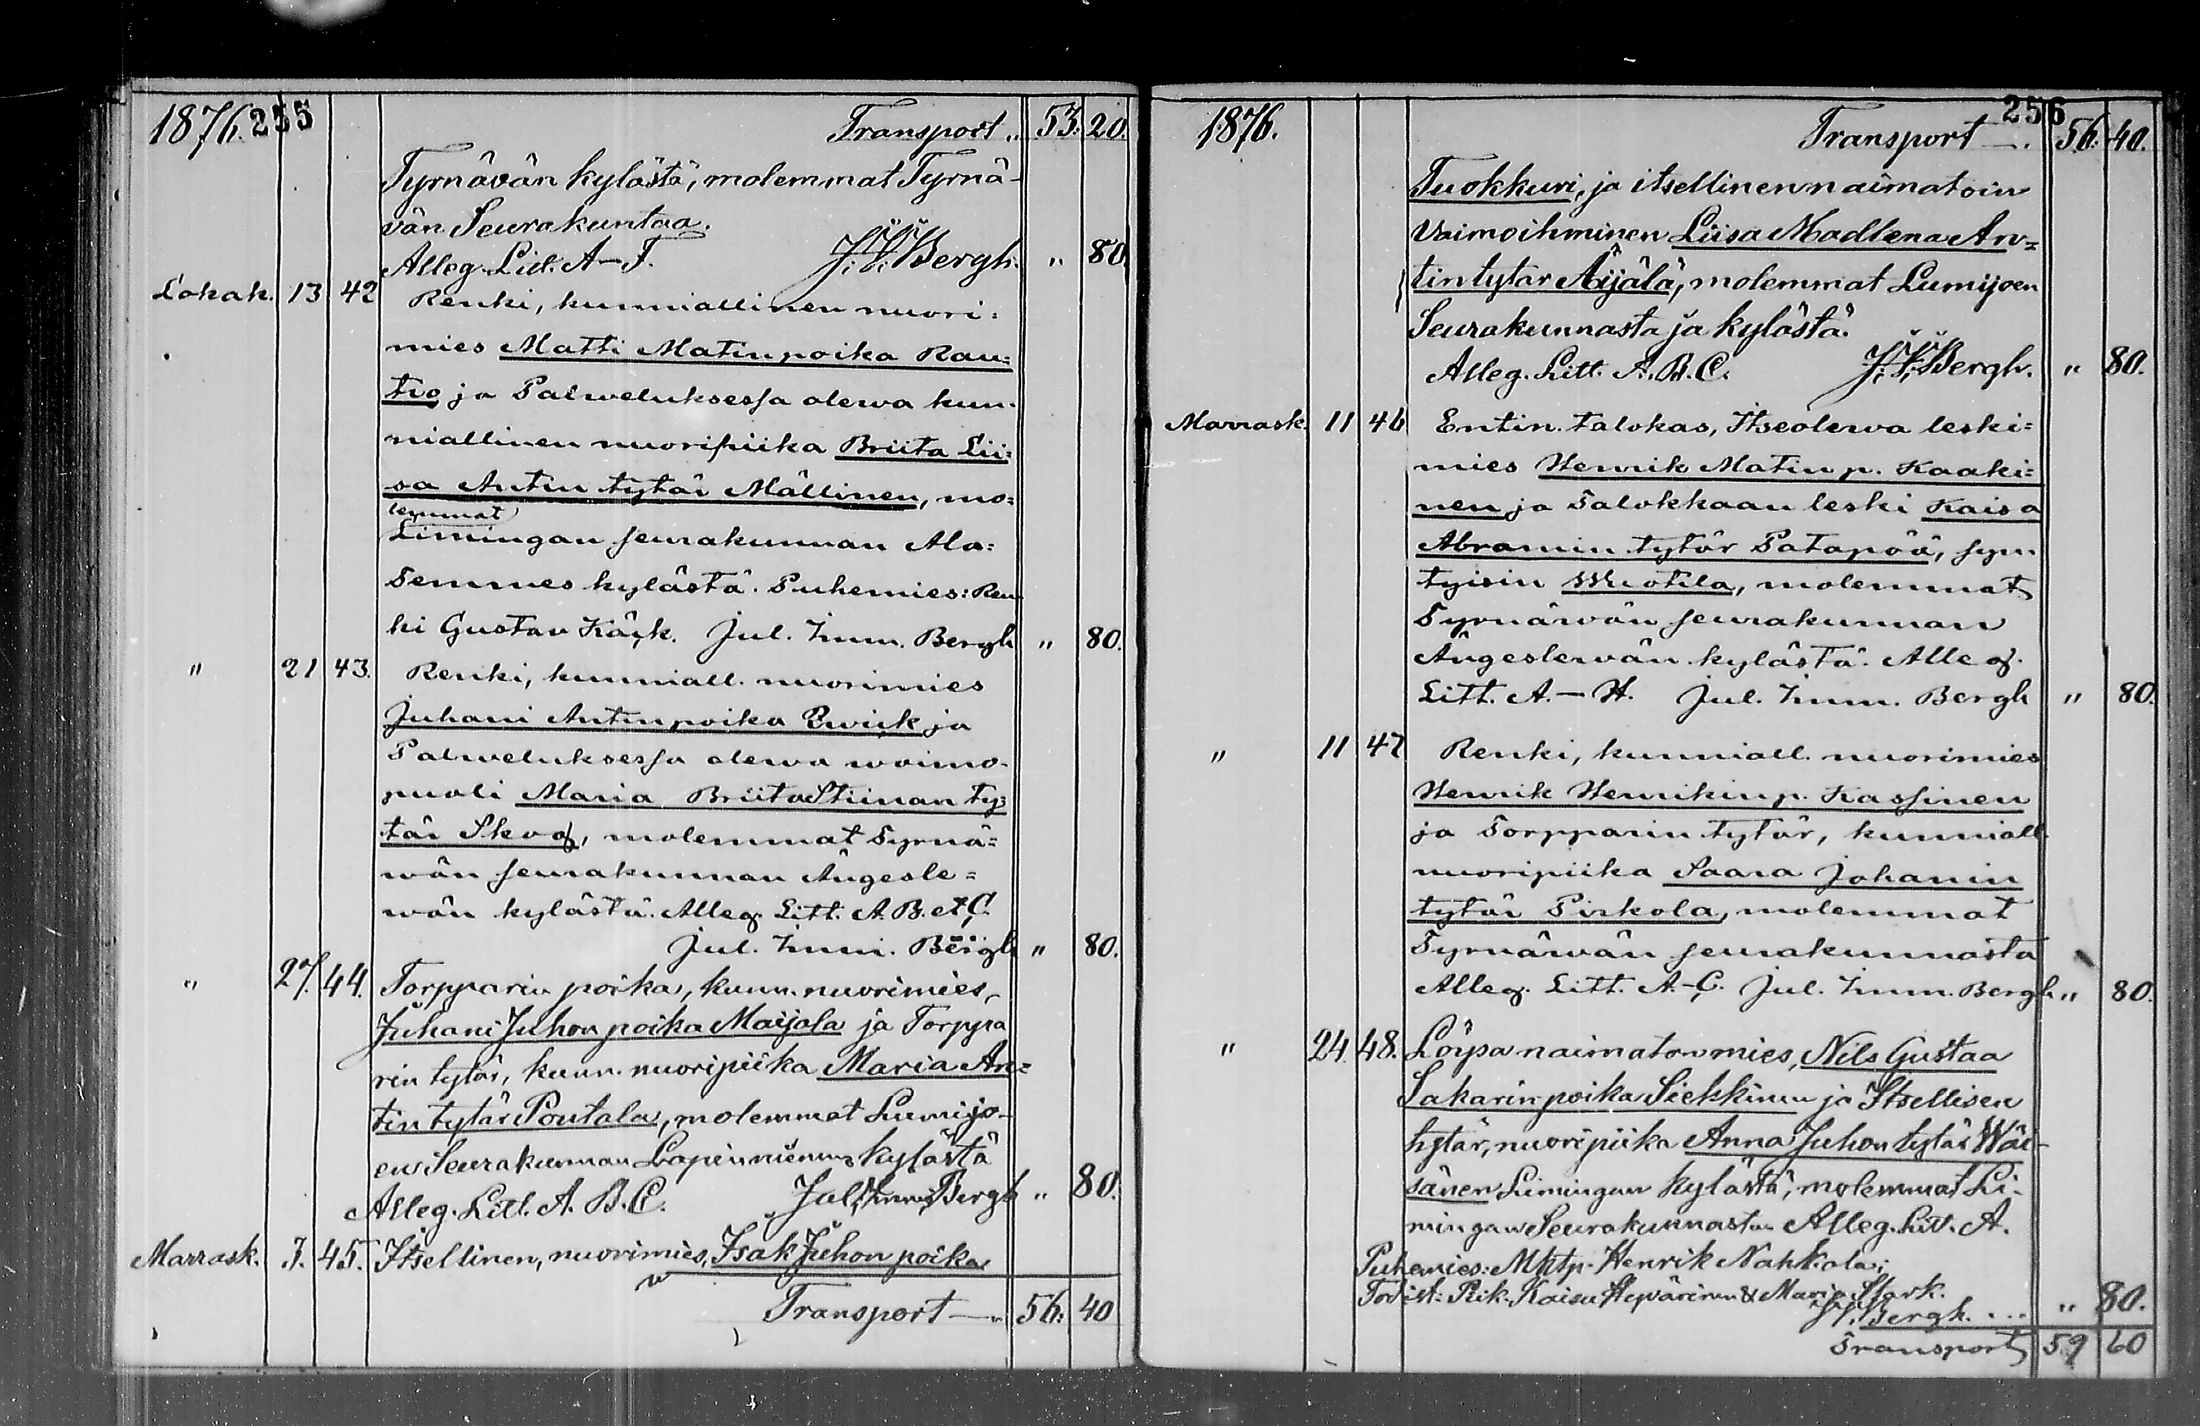 1876. 255 Transport .. 53: 20.
Tyrnävän kylästä, molemmat Tyrnä-
vän Seurakuntaa.
Alleg. Litt. A-F. J. I. Bergh. " 80.
Lokak. 13 42 Renki, kunniallinen nuori=
mies Matti Matinpoika Rau=
tio ja Palweluksessa olewa kun-
niallinen nuoripiika Briita Lii=
sa Antin tytär Mällinen, mo=
lemmat
Limingan seurakunnan Ala=
Temmes kylästä. Puhemies: Ren
ki Gustav Käck. Jul. Imm. Bergh " 80.
" 21 43. Renki, kunniall. nuorimies
Juhani Antinpoika Qwick ja
Palweluksessa olewa waimo-
puoli Maria Briita Stiinan ty=
tär Skog, molemmat Tyrnä=
wän seurakunnan Ängesle=
wän kylästä. Alleg. Litt. A. B. et C.
Jul. Imm. Bergh " 80.
" 27. 44. Torpparin poika, kunn. nuorimies,
Juhani Juhon poika Maijala ja Torppa
rin tytär, kunn. nuoripiika Maria An=
tin tytär Poutala, molemmat Lumijo-
en Seurakunnan Lapinniemen kylästä
Alleg. Litt. A. B. C. Jul. Imm. Bergh " 80.
Marrask. 7. 45. Itsellinen, nuorimies, Isak Juhon poika
Transport — " 56: 40
1876. 256 Transport —. 56: 40.
Tuokkuri, ja itsellinen naimatoin
Vaimoihminen Liisa Madlena An=
tin tytär Äijälä, molemmat Lumijoen
Seurakunnasta ja kylästä.
Alleg. Litt. A. B. C. J. I. Bergh. " 80.
Marrask. 11 46 Entin. talokas, Itseolewa leski=
mies Henrik Matin p. Kaaki=
nen ja Talokkaan leski Kaisa
Abramin tytär Patapää, syn
tyisin Wuotila, molemmat
Tyrnäwän seurakunnan
Ängeslewän kylästä. Alleg.
Litt. A.—H. Jul. Imm. Bergh " 80.
" 11 47 Renki, kunniall. nuorimies
Henrik Henrikin p. Kassinen
ja Torpparin tytär, kunniall.
nuoripiika Saara Johanin
tytär Pirkola, molemmat
Tyrnäwän seurakunnasta
Alleg. Litt. A.-C. Jul. Imm. Bergh " 80.
" 24. 48. Löysä naimaton mies, Nils Gustaa
Sakarin poika Siekkinen ja Itsellisen
tytär, nuoripiika Anna Juhon tytär Wäi-
sänen Limingan kylästä, molemmat Li-
mingan Seurakunnasta Alleg. Litt. A.
Puhemies: Mktp. Henrik Nahkola;
Todist: Piik. Kaisa Hyvärinen & Maria Stark.
J. I. Bergh. ... " 80.
Transport 59 60